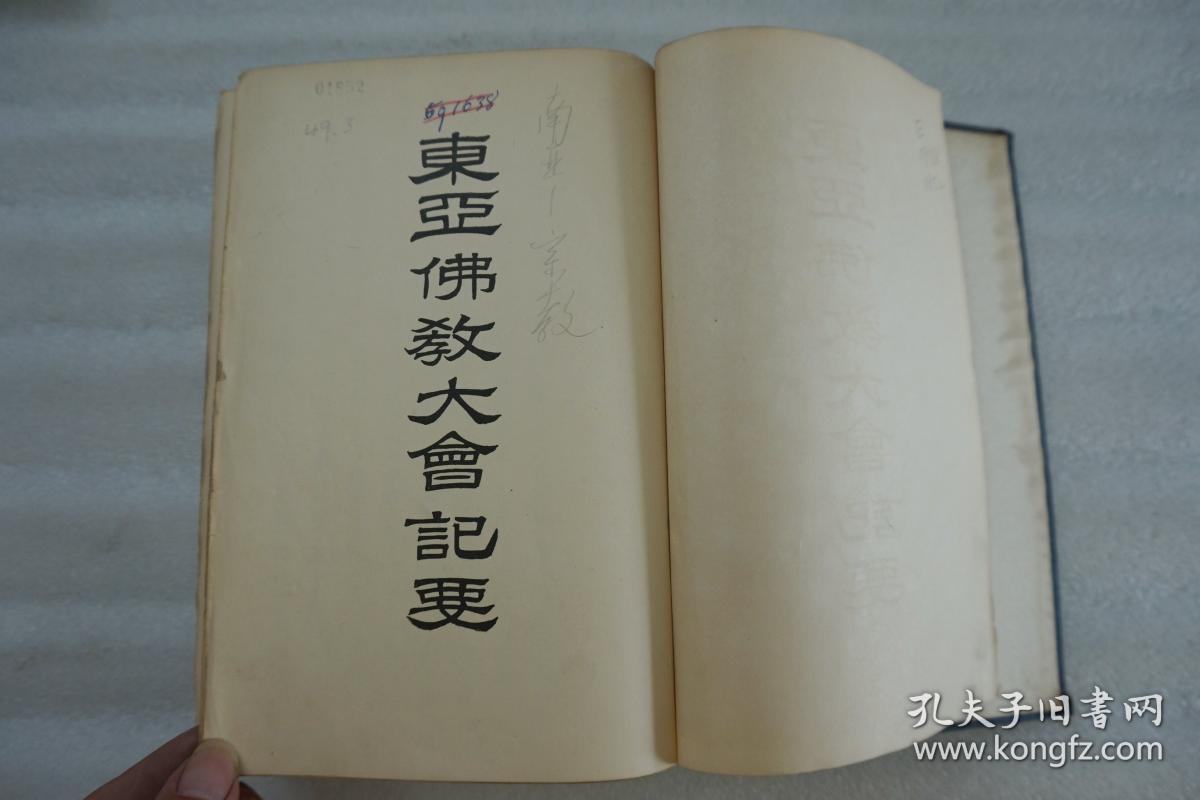 01852
49.3
691638
東亞佛教大會記要
南亞－宗教
孔夫子旧书网
www.kongfz.com